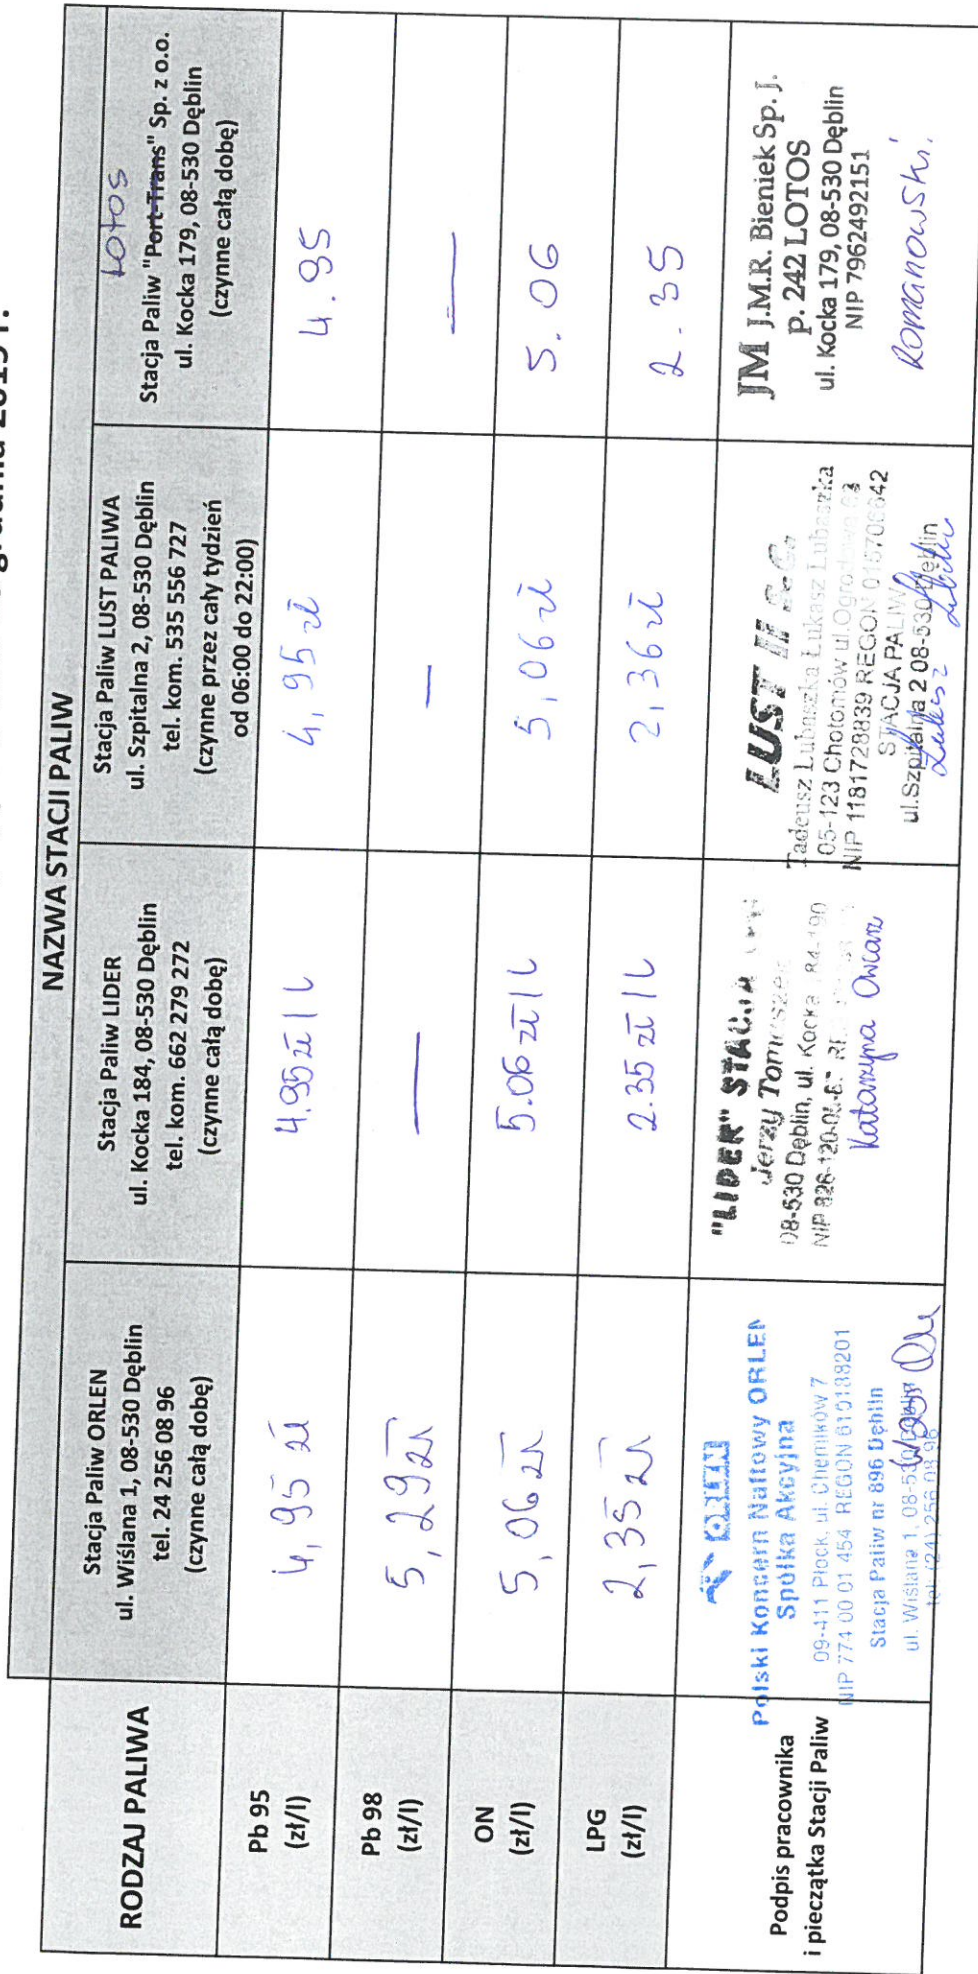 NAZWA STACJI PALIW
RODZAJ PALIWA
Stacja Paliw ORLEN
ul. Wiślana 1, 08-530 Dęblin
tel. 24 256 08 96
(czynne całą dobę)
Stacja Paliw LIDER
ul. Kocka 184, 08-530 Dęblin
tel. kom. 662 279 272
(czynne całą dobę)
Stacja Paliw LUST PALIWA
ul. Szpitalna 2, 08-530 Dęblin
tel. kom. 535 556 727
(czynne przez cały tydzień
od 06:00 do 22:00)
LOTOS
Stacja Paliw "Port-Trans" Sp. z o.o.
ul. Kocka 179, 08-530 Dęblin
(czynne całą dobę)
Pb 95
(zł/l)
4,95 zł
4.95 zł/l
4,95 zł
4.95
Pb 98
(zł/l)
5,29 zł
—
—
—
ON
(zł/l)
5,06 zł
5.06 zł/l
5,06 zł
5.06
LPG
(zł/l)
2,35 zł
2.35 zł/l
2,36 zł
2.35
Podpis pracownika
i pieczątka Stacji Paliw
ORLEN
Polski Koncern Naftowy ORLEN
Spółka Akcyjna
09-411 Płock, ul. Chemików 7
NIP 774 00 01 454 REGON 610188201
Stacja Paliw nr 896 Dęblin
ul. Wiślana 1, 08-530 Dęblin
tel. (24) 256 08 96
"LIDER" STACJA
Jerzy
08-530 Dęblin, ul. Kocka
NIP 826-120-
Katarzyna Owcarz
LUST II S.C.
Tadeusz Lubaszka Łukasz Lubaszka
05-123 Chotomów ul.Ogrodowa
NIP 1181728839 REGON
STACJA PALIW
ul.Szpitalna 2 08-530 Dęblin
Łukasz
JM J.M.R. Bieniek Sp. J.
p. 242 LOTOS
ul. Kocka 179, 08-530 Dęblin
NIP 7962492151
Romanowski.